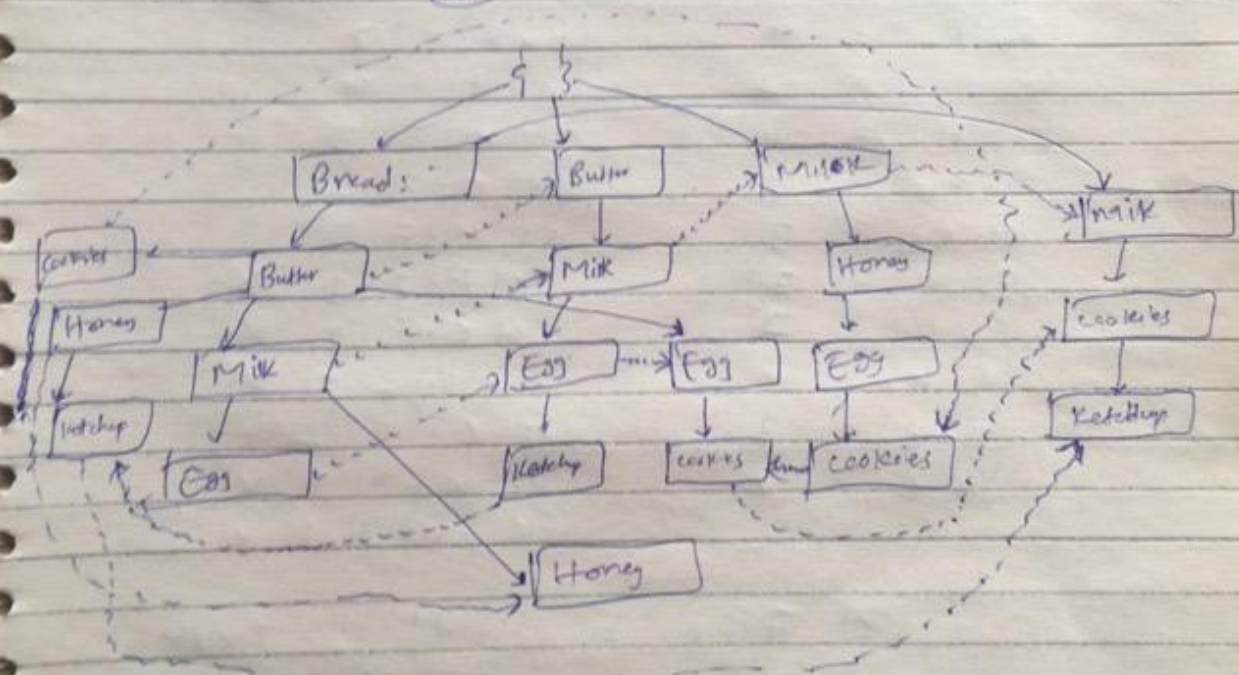 { }
Bread:
Butter
Milk
Milk
Cookies
Butter
Milk
Honey
Honey
cookies
Milk
Egg
Egg
Egg
Ketchup
Ketchup
Egg
Ketchup
cookies
cookies
Honey